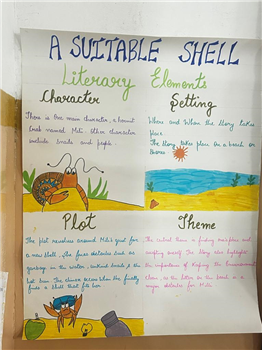 A SUITABLE SHELL
Literary Elements
Character
There is one main character, a hermit
crab named Miti. Other characters
include snails and people.
Setting
Where and When the Story takes
place
The Story takes place on a beach or
Plot
The plot revolves around Miti's quest for
a new shell. She faces obstacles such as
garbage in the water, unkind snails & the
hot sun. The climax occurs when she finally
finds a shell that fits her.
Theme
The central theme is finding one's place and
accepting oneself. The Story also highlights
the importance of Keeping the Environment
Clean, as the litter on the beach is a
major obstacle for Miti.